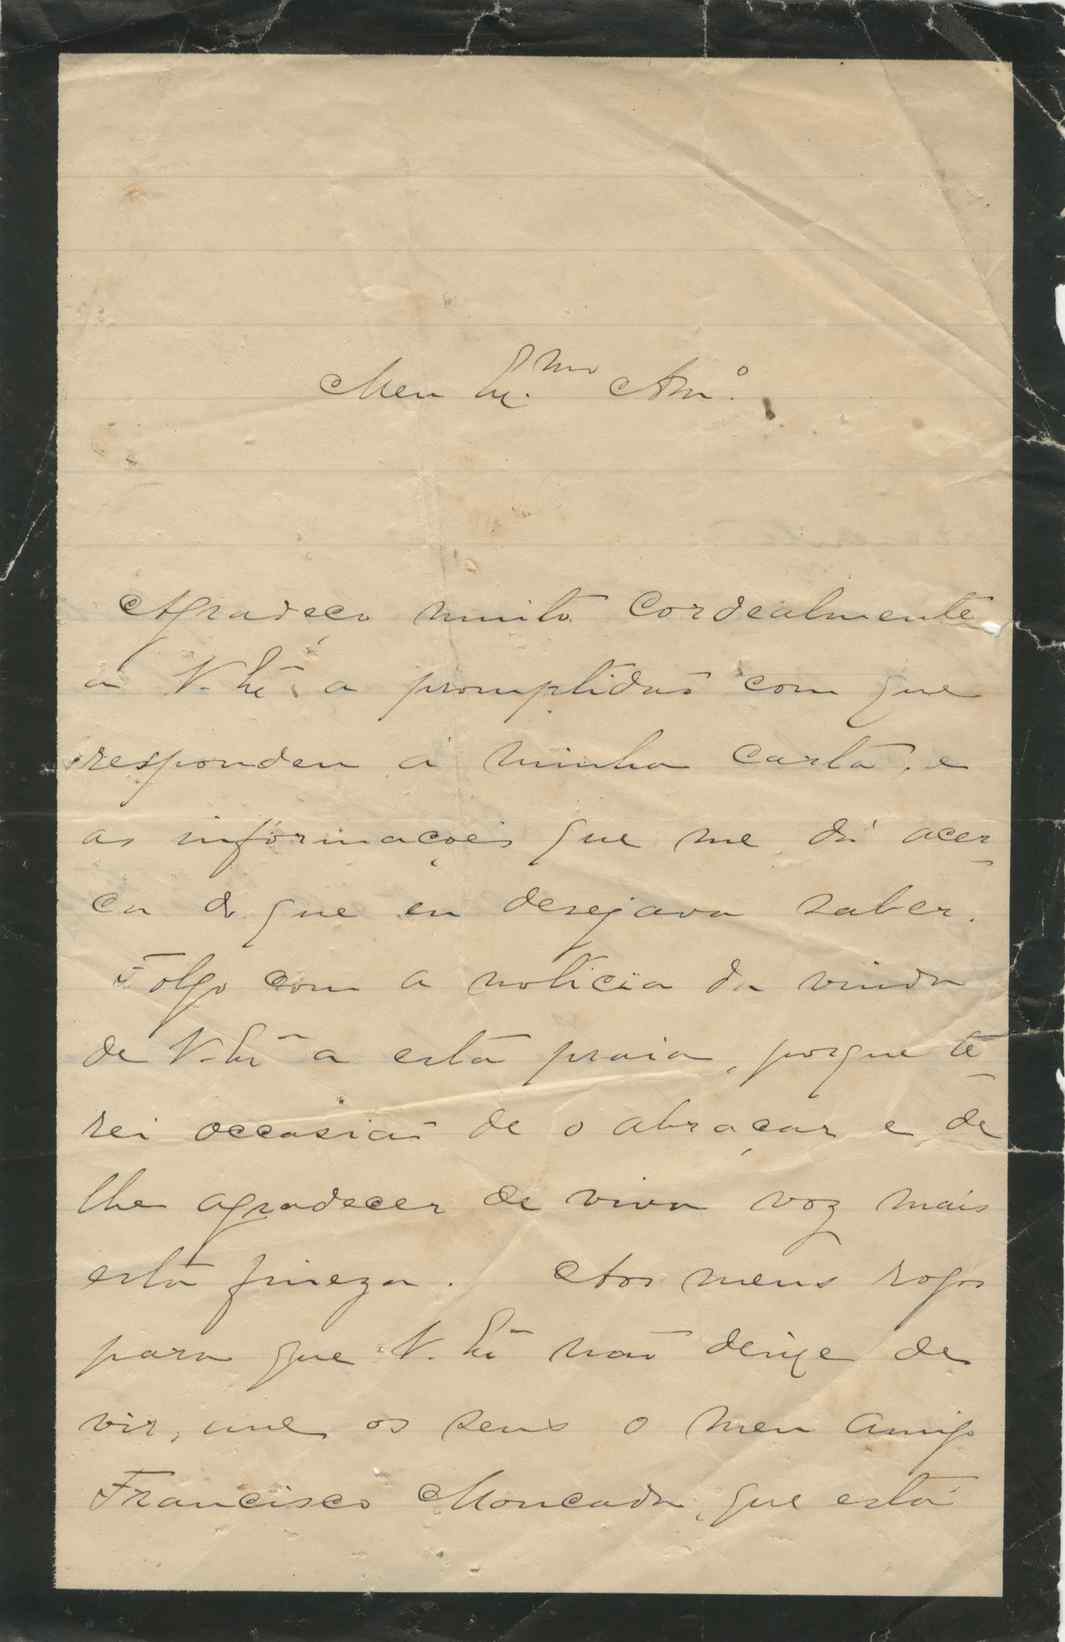 Meu Ex.mo Am.o
Agradeço muito cordealmente
a V. Ex.ª a promptidaõ com que
respondeu á minha carta, e
as informaçoẽs que me dá acer-
ca do que eu desejava saber.
Folgo com a noticia da vinda
de V. Ex.ª a esta praia, porque te-
rei occasiaõ de o abraçar e de
lhe agradecer de viva voz mais
esta fineza. Aos meus rogos
para que V. Ex.ª naõ deixe de
vir, une os seus o meu amigo
Francisco Moncada, que está